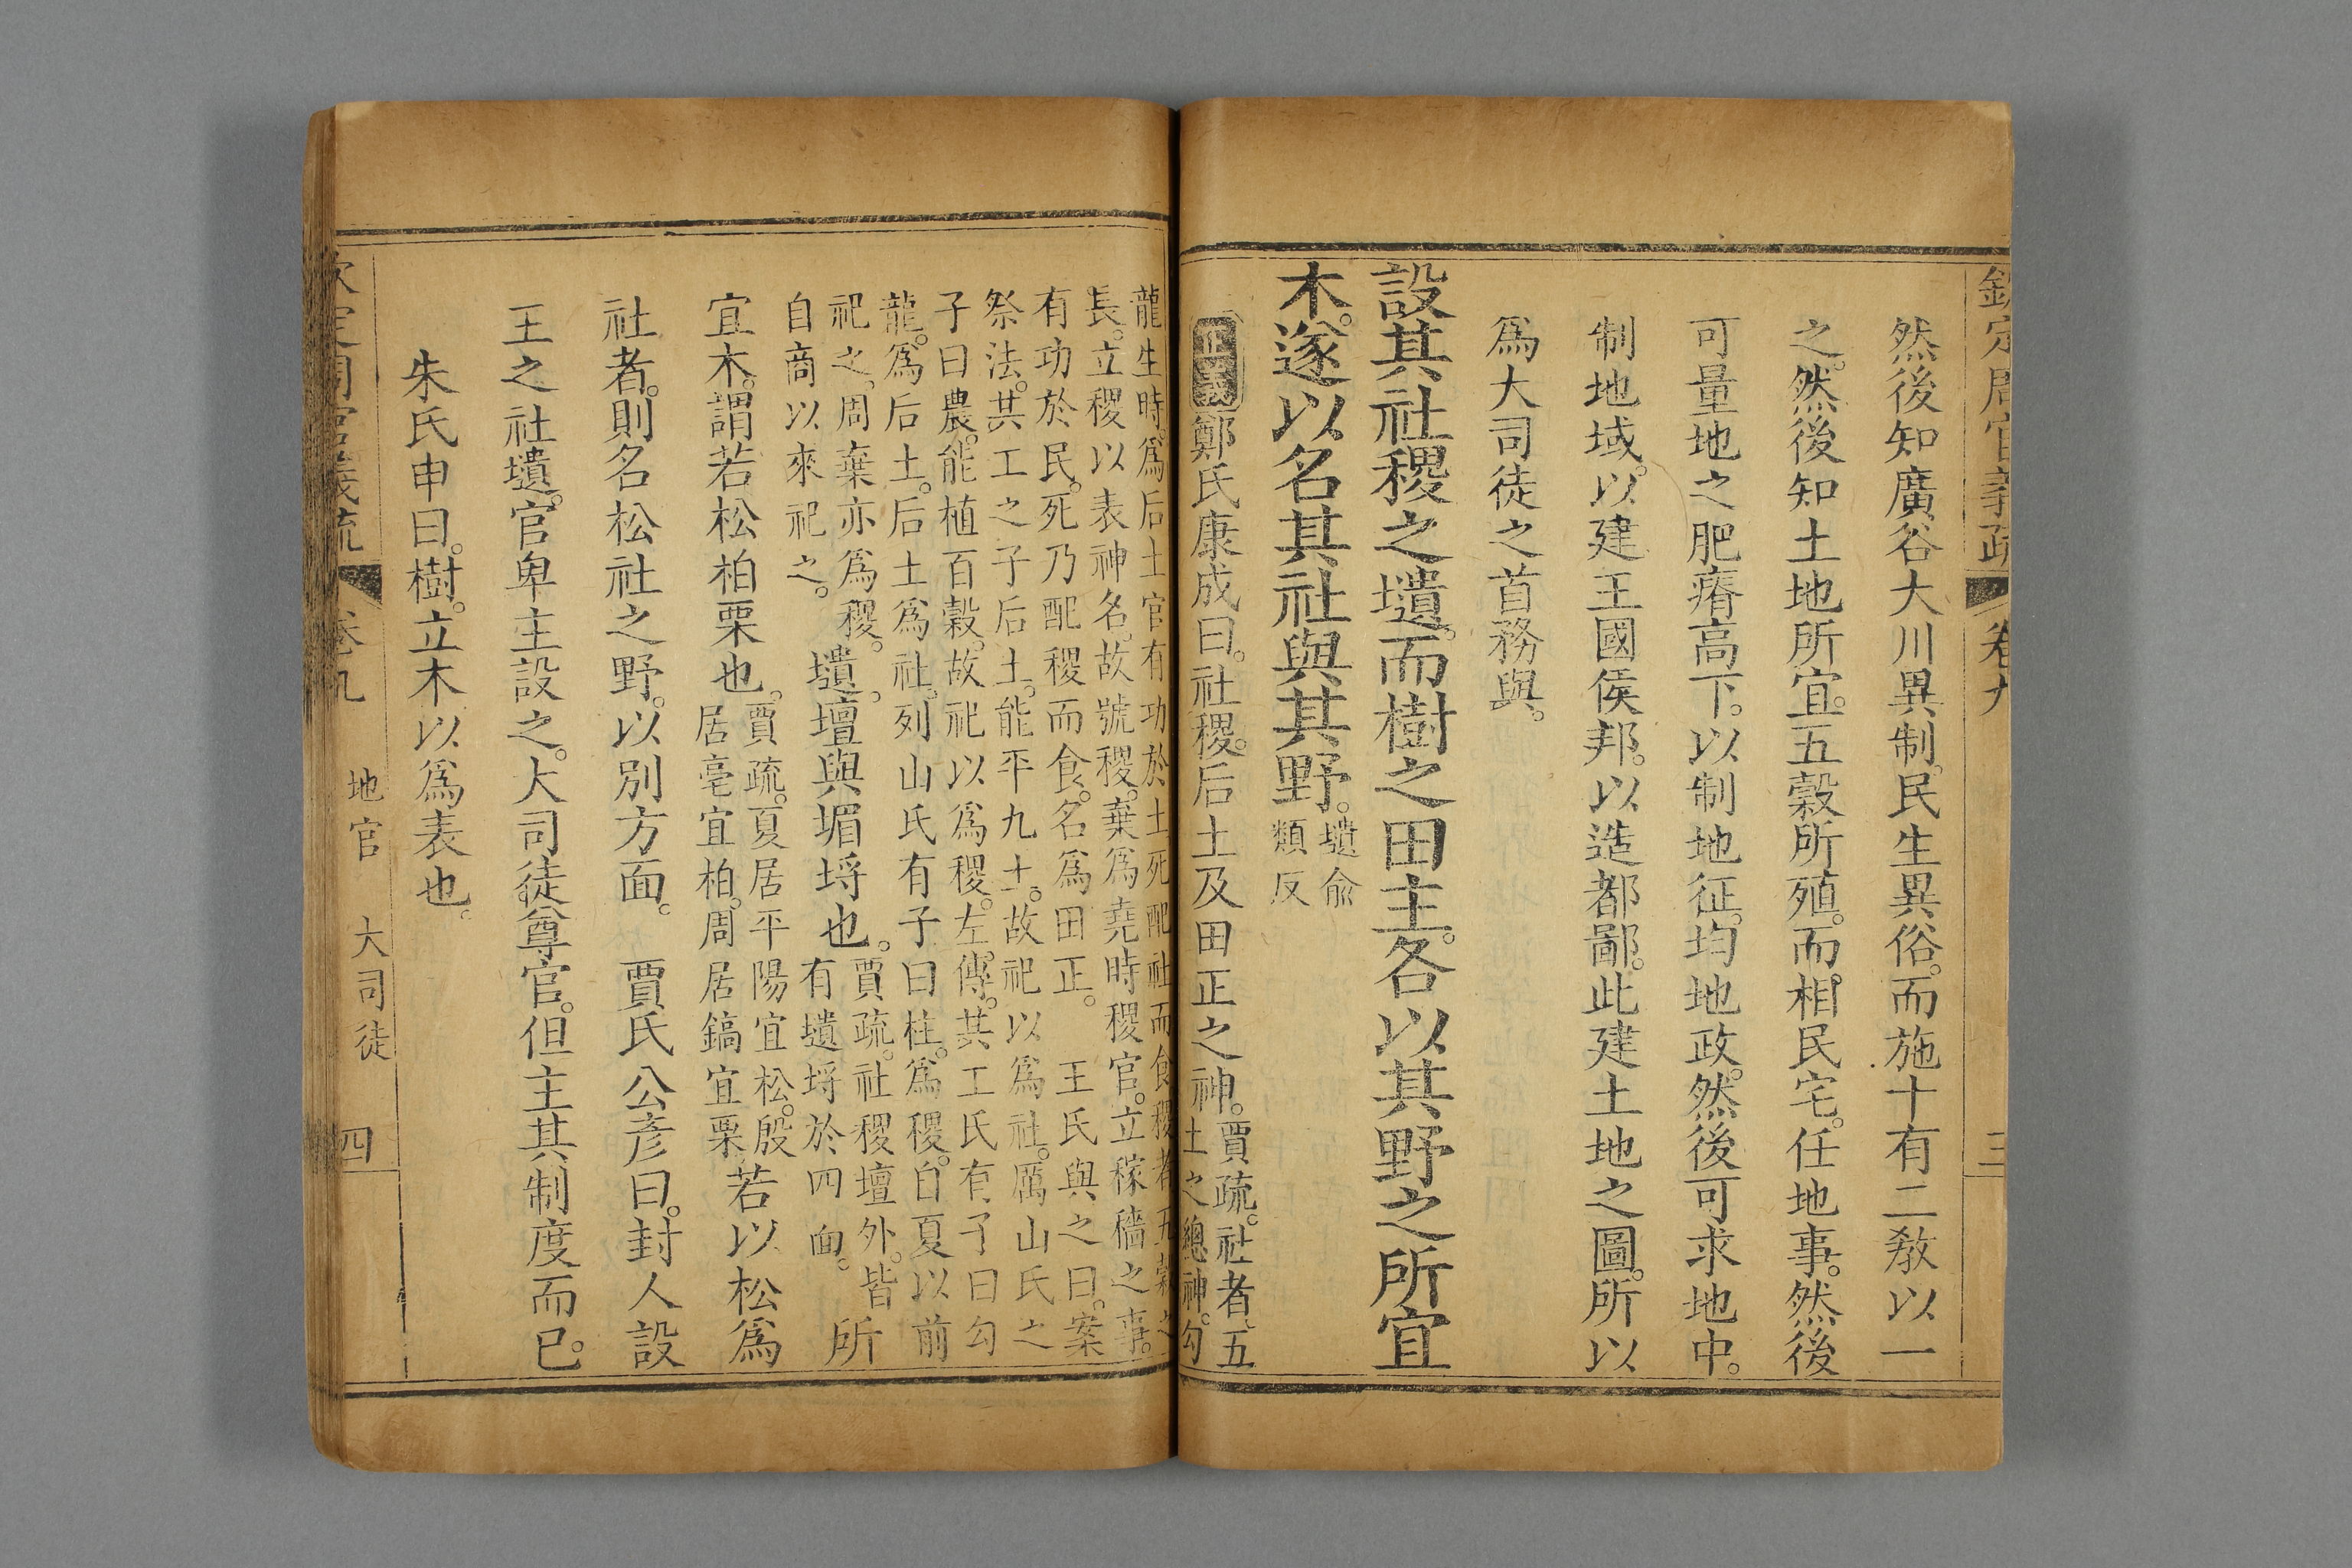 欽定周官義疏 卷九 三
然後知廣谷大川異制。民生異俗。而施十有二敎以一
之。然後知土地所宜。五穀所殖。而相民宅。任地事。然後
可量地之肥瘠高下。以制地征。均地政。然後可求地中。
制地域。以建王國侯邦。以造都鄙。此建土地之圖。所以
爲大司徒之首務與。
設其社稷之壝。而樹之田主。各以其野之所宜
木。遂以名其社與其野。壝兪
類反
正義鄭氏康成曰。社稷。后土及田正之神。賈疏。社者。五
土之總神。勾
龍生時爲后土官。有功於土。死配社而食。稷者。五穀之
長。立稷以表神名。故號稷。棄爲堯時稷官。立稼穡之事。
有功於民。死乃配稷而食。名爲田正。 王氏與之曰。案
祭法。共工之子后土。能平九土。故祀以爲社。厲山氏之
子曰農。能植百穀。故祀以爲稷。左傳。共工氏有子曰勾
龍。爲后土。后土爲社。列山氏有子曰柱。爲稷。自夏以前
祀之。周棄亦爲稷。
自商以來祀之。
壝。壇與堳埒也。賈疏。社稷壇外。皆
有壝埒於四面。所
宜木。謂若松柏栗也。賈疏。夏居平陽宜松。殷
居亳宜柏。周居鎬宜栗。若以松爲
社者。則名松社之野。以別方面。 賈氏公彥曰。封人設
王之社壝。官卑主設之。大司徒尊官。但主其制度而已。
朱氏申曰。樹。立木以爲表也。
欽定周官義疏 卷九 地官 大司徒 四